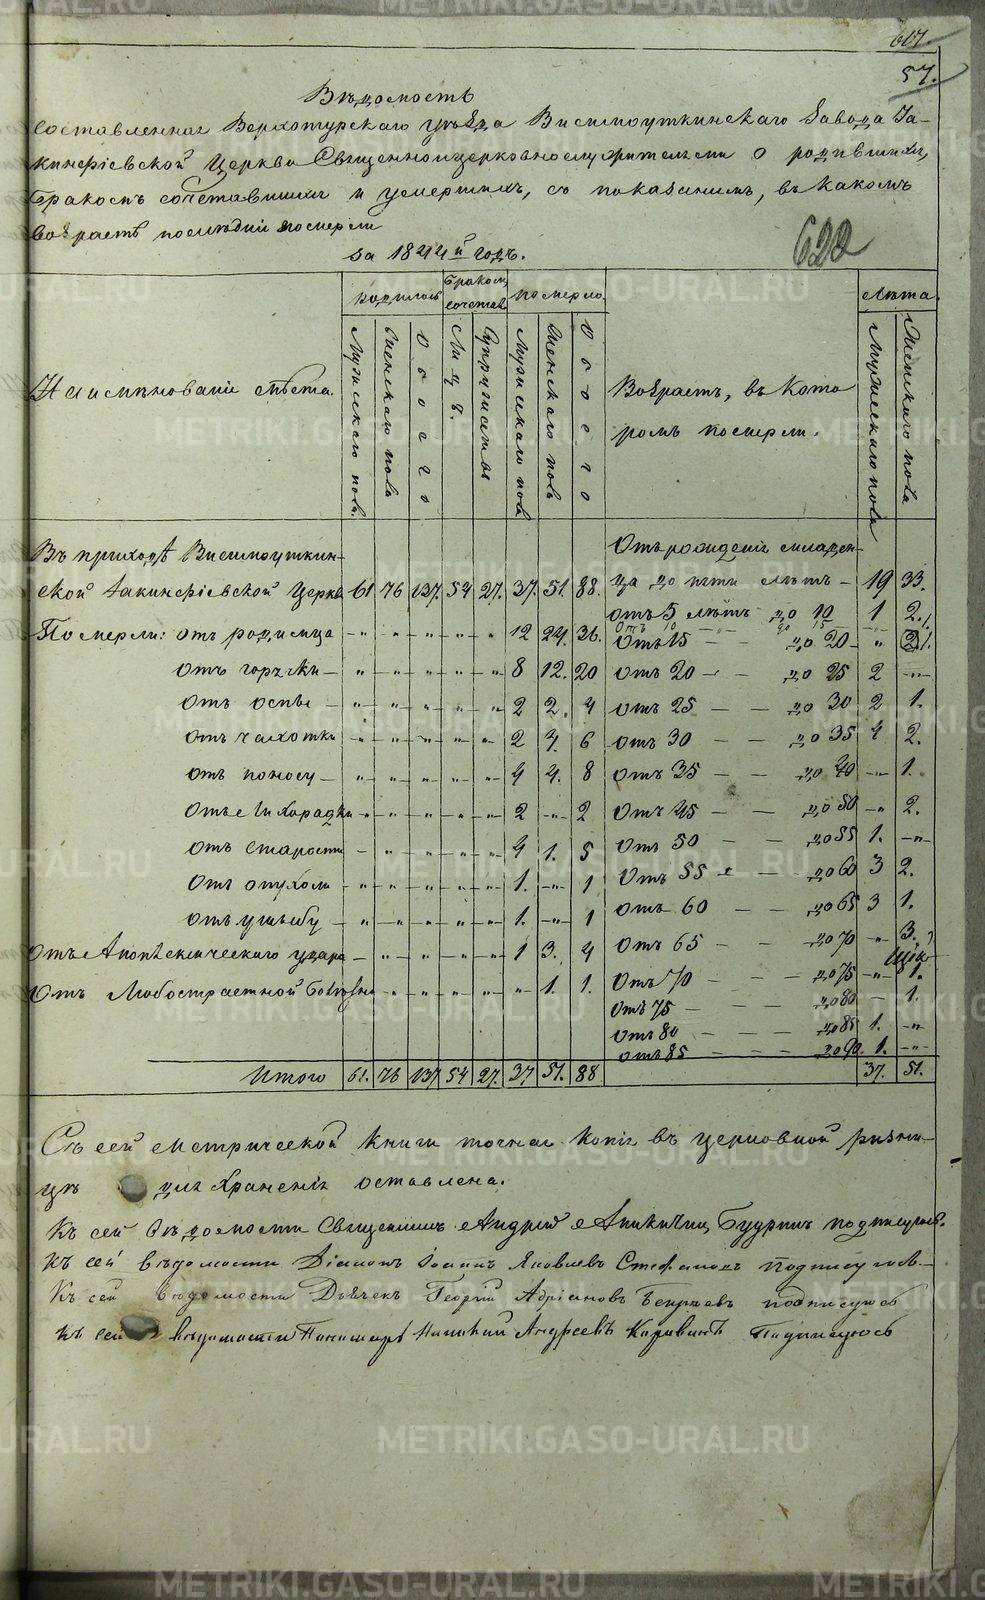 617.
57.
Вѣдомость
составленная Верхотурскаго уѣзда Висимоуткинскаго Завода Іа-
кинфіевской Церкви Священноцерковнослужителями о родившихся,
бракомъ сочетавшихся и умершихъ, съ показаніемъ, въ какомъ
возрастѣ послѣдніе померли
за 1844й годъ.
622
Наименованіе мѣста. Родилось Бракомъ сочетав. Померло. Возрастъ, въ кото Лѣта.
ромъ померли.
Мужескаго пола. Женскаго пола Обоего Лицъ. Супружествъ Мужескаго пола Женскаго пола Обоего Мужескаго пола Женскаго пола
Въ приходѣ Висимоуткин- Отъ рожденія младен-
ской Іакинфіевской Церкви 61 76 137. 54 27. 37. 51. 88. ца до пяти лѣтъ - 19 33.
отъ 5 лѣтъ до 10 1 2.
отъ 10 - - до 15
Померли: отъ родимца - " - " - " - " - " 12 24. 36. отъ 15 - - до 20 " 2
отъ горячки - " - " - " - " - " 8 12. 20 отъ 20 - - до 25 2 - " -
отъ оспы - " - " - " - " - " 2 2. 4 отъ 25 - - до 30 2 1.
отъ чахотки - " - " - " - " - " 2 4. 6 отъ 30 - - до 35 4 2.
отъ поносу - " - " - " - " - " 4 4. 8 отъ 35 - - до 40 - " - 1.
отъ Лихорадки - " - " - " - " - " 2 - " - 2 отъ 45 - - до 50 - " 2.
отъ старости - " - " - " - " - " 4 1. 5 отъ 50 - - до 55 1. - " -
отъ опухоли - " - " - " - " - " 1. - " - 1 отъ 55 - до 60 3 2.
отъ ушибу - " - " - " - " - " 1. - " - 1 отъ 60 - - до 65 3 1.
отъ Апоплексическаго удара - " - " - " - " - " 1 3. 4 отъ 65 - - до 70 - " 3.
отъ Любострастной болѣзни - " - " - " - " - " " 1. 1. отъ 70 - до 75 - " - 1.
отъ 75 - - до 80 - 1.
отъ 80 - - - до 85 1. - "
отъ 85 - - - до 90. 1. - " -
Итого 61. 76 137 54 27. 37 51. 88 37. 51.
Съ сей метрической книги точная копія въ церковной ризни-
цѣ для храненія оставлена.
Къ сей вѣдомости Священникъ Андрей Аникичиц Будринъ подписуюсь.
Къ сей вѣдомости Діаконъ Іоаннъ Яковлевъ Стефановъ подписуюсь
Къ сей вѣдомости Дьячекъ Георгій Адріановъ подписуюсь
Къ сей вѣдомости Пономарь Андреевъ Коровинъ Подписуюсь
METRIKI.GASO-URAL.RU